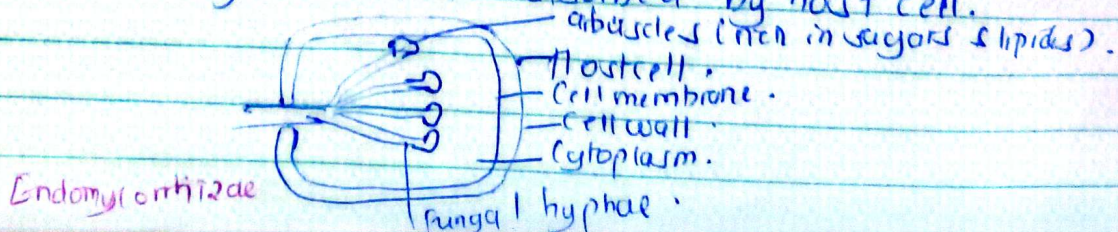 by host cell.
arbuscles (rich in sugars & lipids).
Hostcell.
Cell membrane.
Cell wall
Cytoplasm.
Endomycorrhizae
Fungal hyphae.